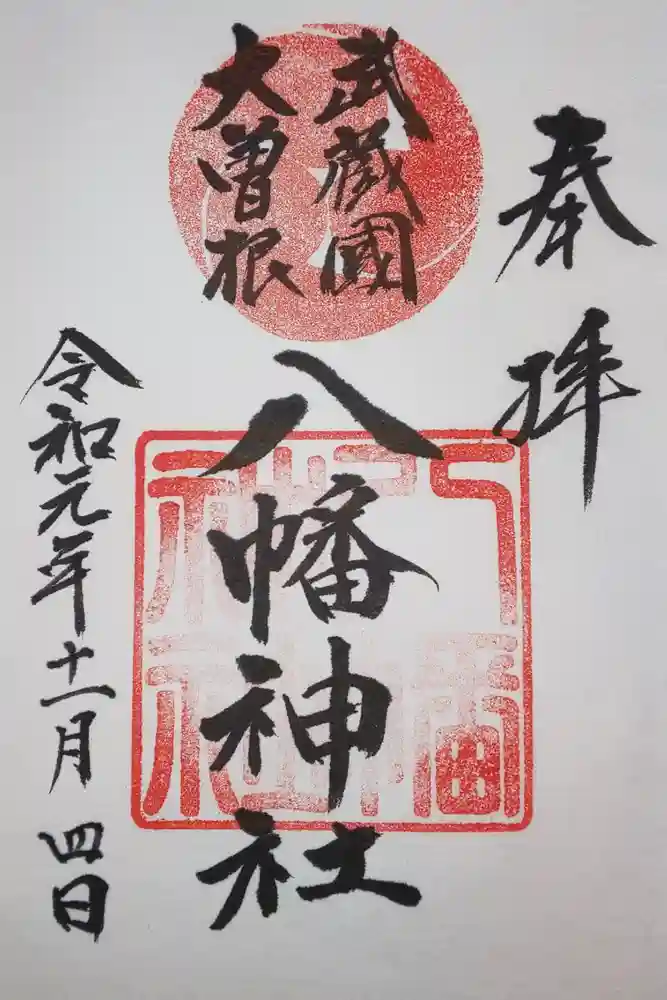 奉拝
武蔵國
大曽根
八幡神社
令和元年十一月四日
八幡
神社